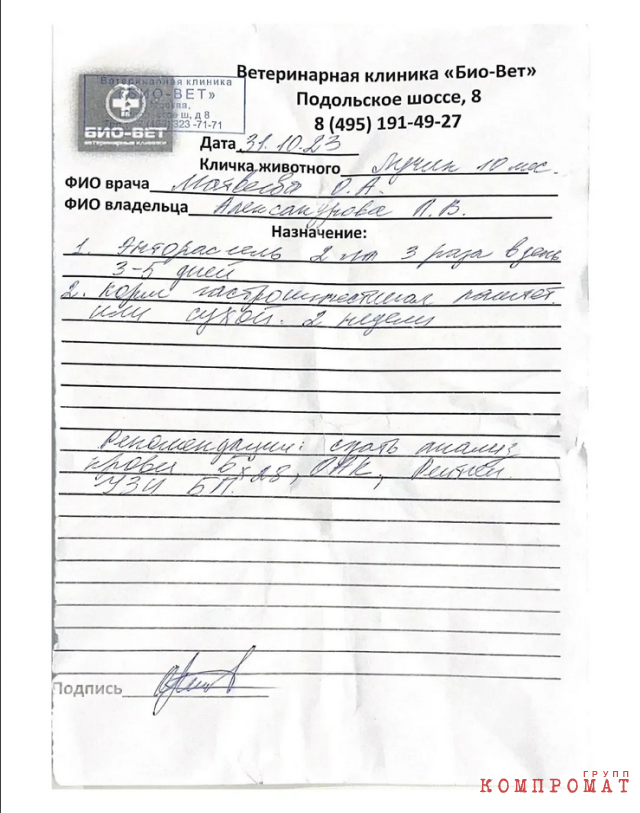 Ветеринарная клиника «Био-Вет»
Подольское шоссе, 8
8 (495) 191-49-27
Ветеринарная клиника
«БИО-ВЕТ»
ш, д 8
323-71-71
БИО-ВЕТ
ветеринарные клиники
Дата 31.10.23
Кличка животного 10 мес.
ФИО врача Матвеева О.А.
ФИО владельца Александрова П.В.
Назначение:
1. 2 мл 3 раза в день
3-5 дней
2. Корм
или сухой. 2 недели
Рекомендации: сдать анализ
крови бх28, ОАК,
УЗИ БП.
Подпись
ГРУПП
КОМПРОМАТ